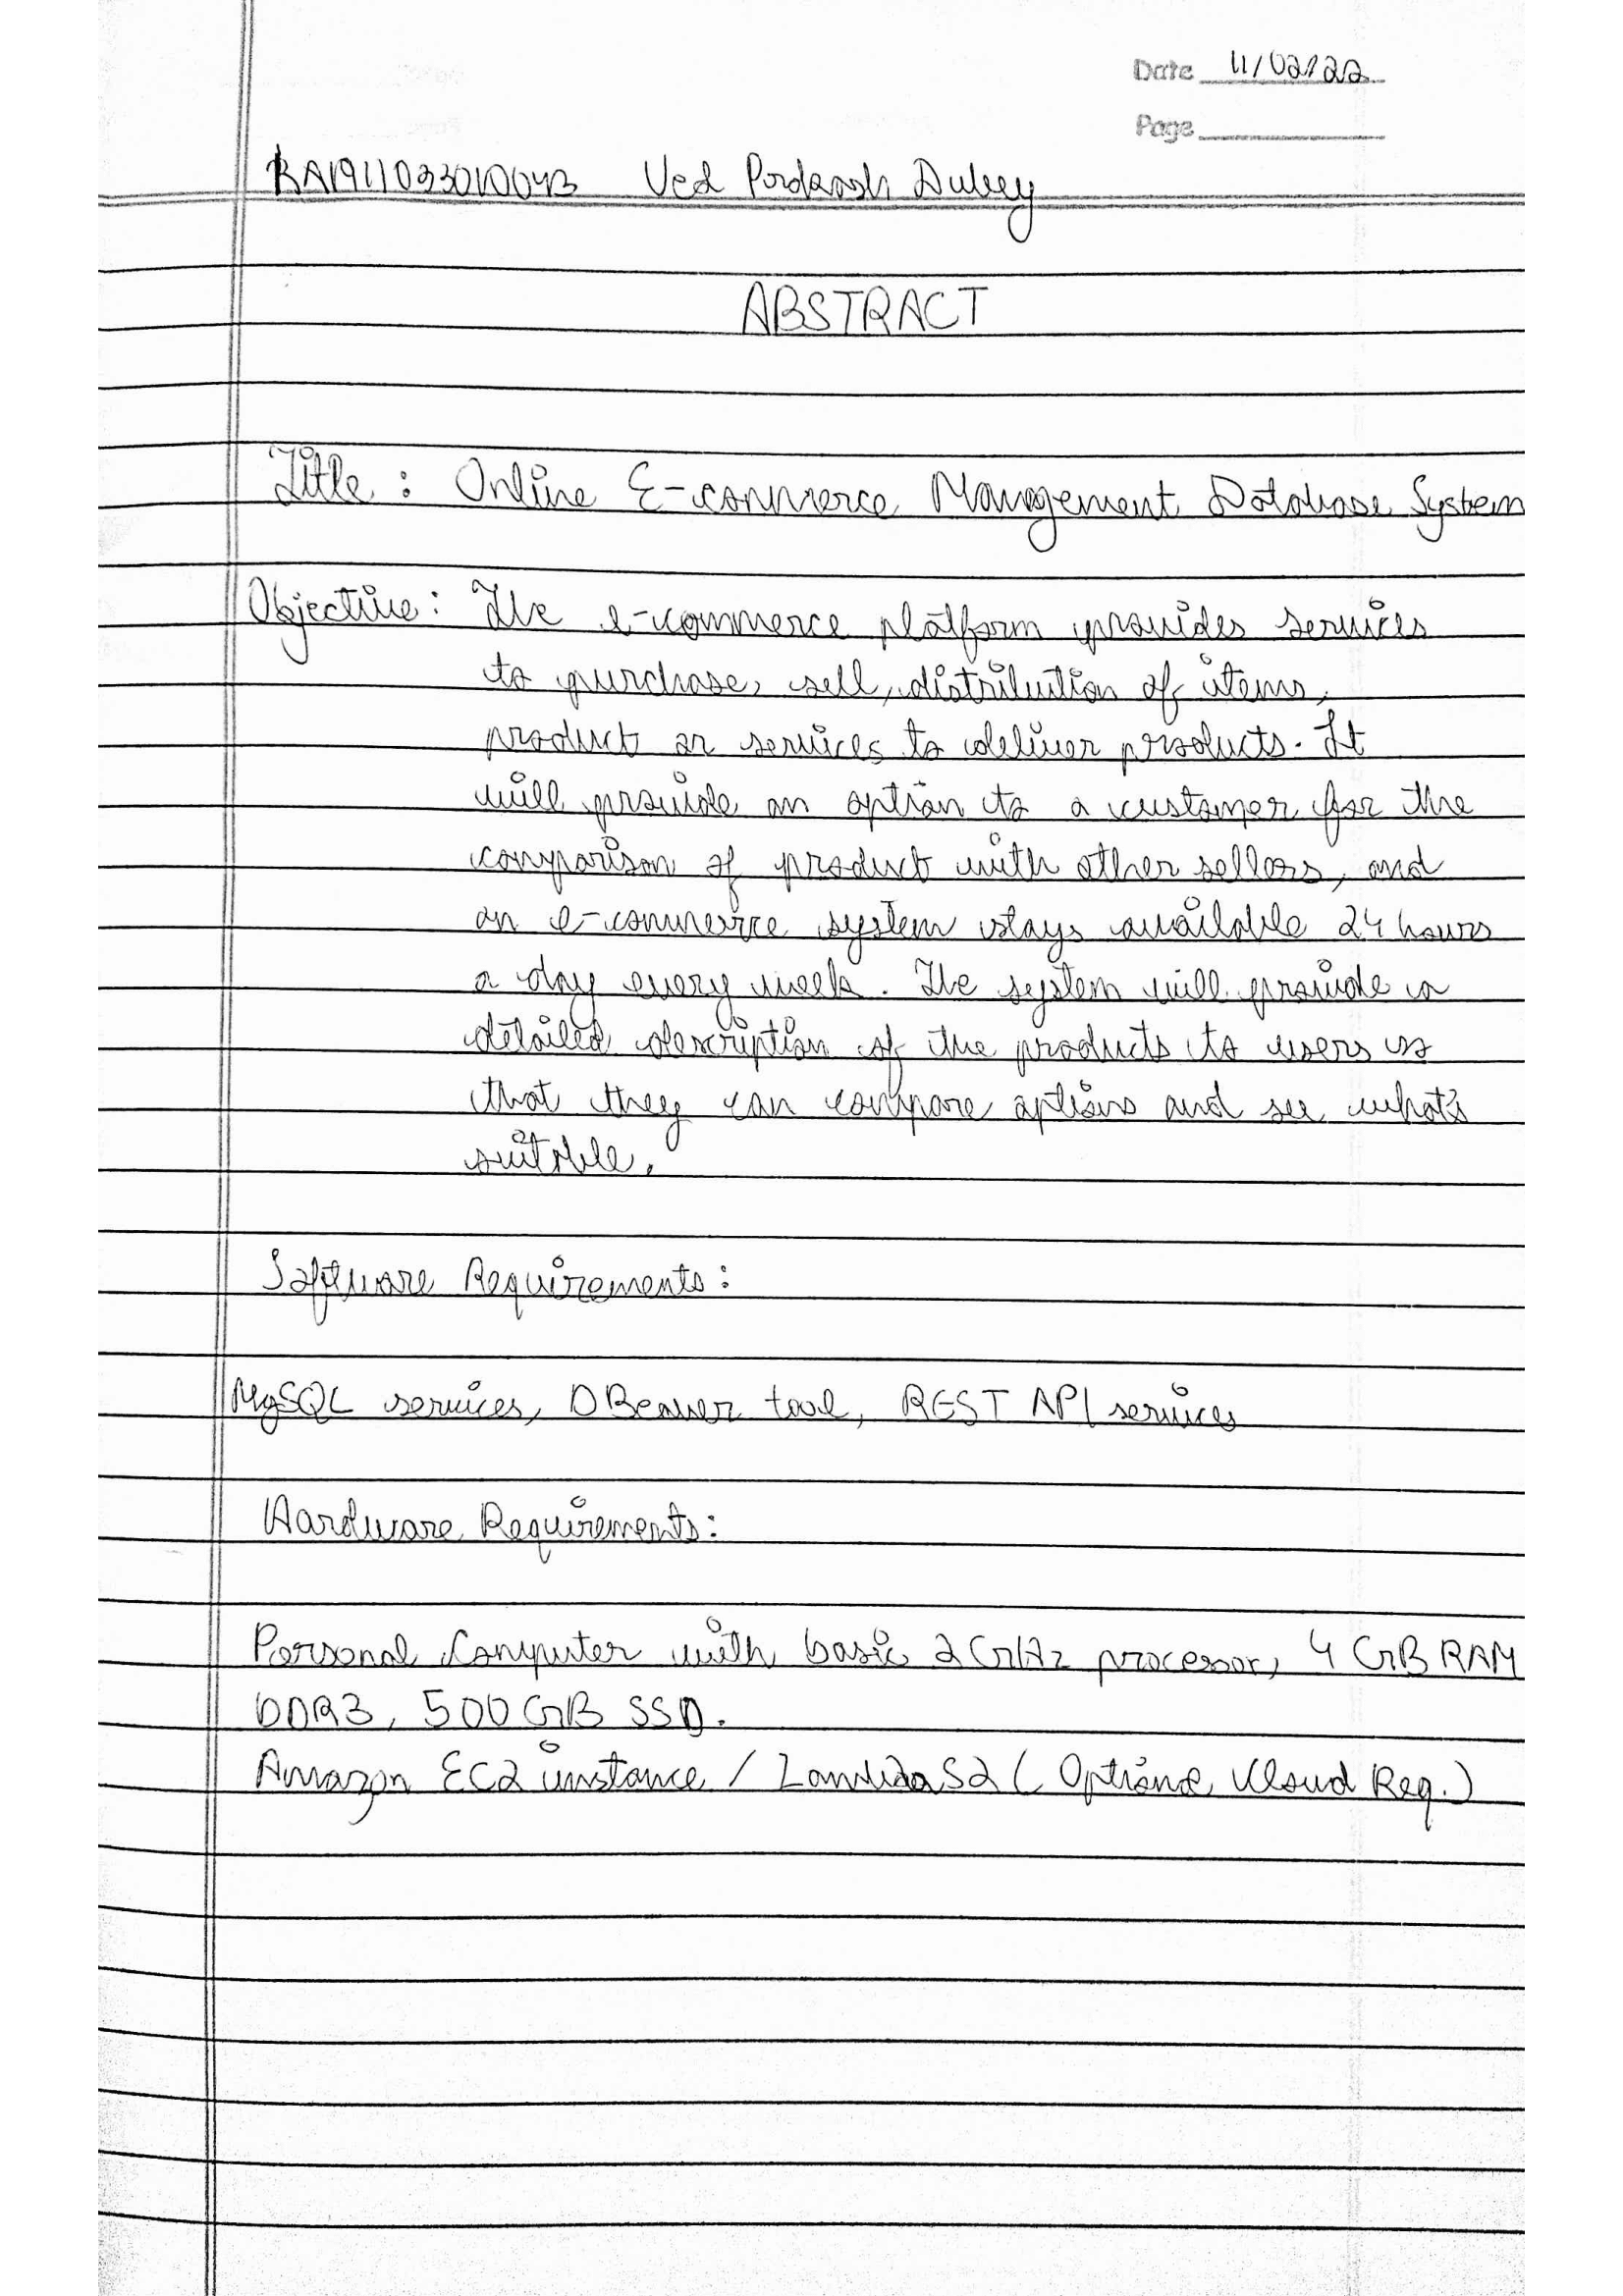 Date 11/02/22
Page
RA1911033010043 Ved Prakash Dubey
ABSTRACT
Title : Online E-commerce Management Database System
Objective : The e-commerce platform provides services
to purchase, sell, distribution of items,
product or services to deliver products. It
will provide an option to a customer for the
comparison of product with other sellers, and
an e-commerce system stays available 24 hours
a day every week. The system will provide a
detailed description of the products to users so
that they can compare options and see what's
suitable.
Software Requirements :
MySQL services, DBeaver tool, REST API services
Hardware Requirements :
Personal Computer with basic 2 GHz processor, 4 GB RAM
DDR3, 500 GB SSD.
Amazon EC2 instance / Lambda S2 ( Optional Cloud Req. )